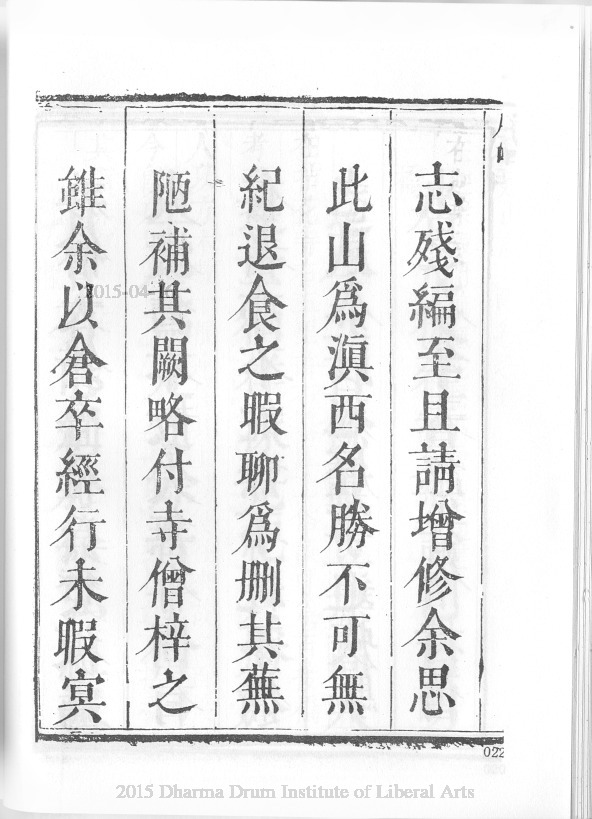 志殘編至且請增修余思
此山爲滇西名勝不可無
紀退食之暇聊爲刪其蕪
陋補其闕略付寺僧梓之
雖余以倉卒經行未暇冥
022
2015-04-
2015 Dharma Drum Institute of Liberal Arts